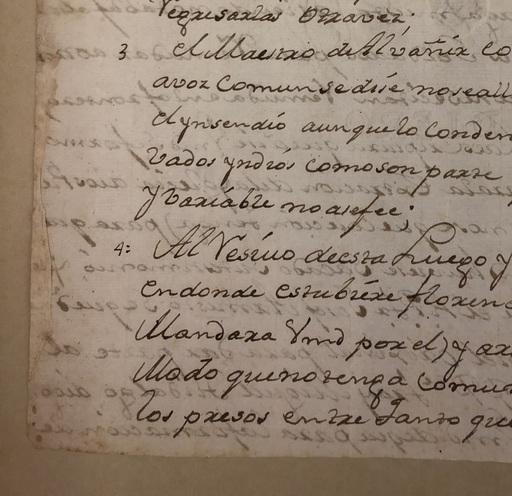 Vequsarlas Otravez.
3 el Maestro de Alvañir Co
avoz Comun se dise no se all
el ynsendio aunque lo Conden
vados yndios Como son parte
y variable no asefee;
4: Al Vesino de esta Luego y
endonde estubiere florenc
Mandara Vmd por el) y ar
Modo que no tenga Comun
los presos entre tanto que